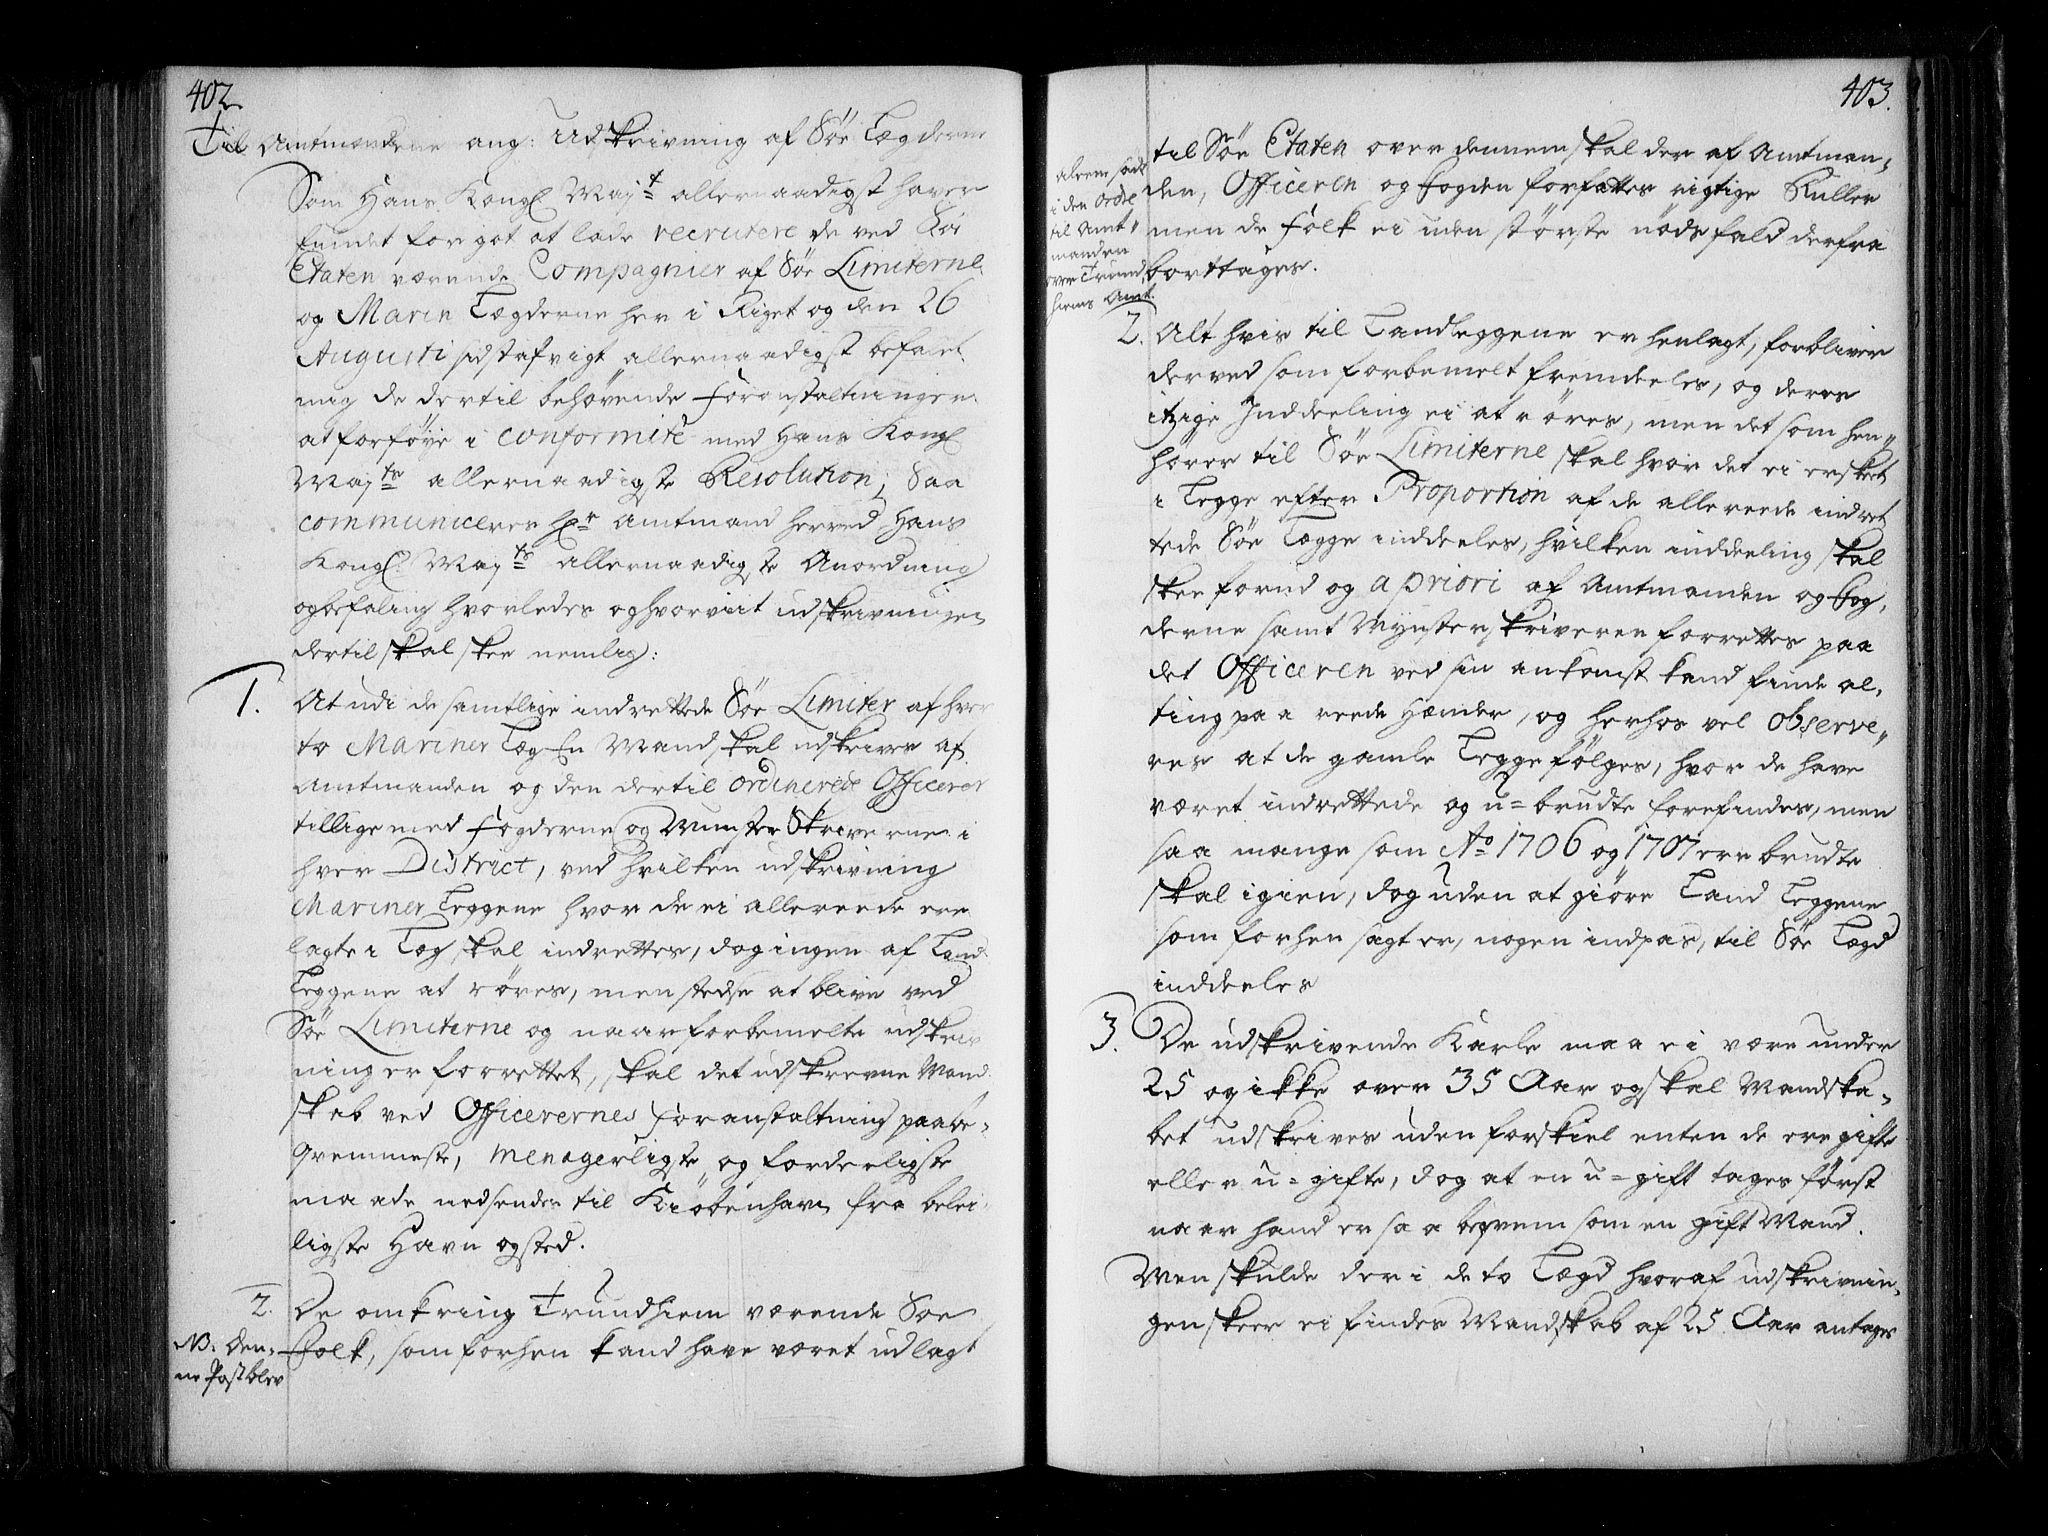 402.
Til Amtmændene ang: Udskrivning af Söe Lægderne
Som Hans Kongl. Mayt allernaadigst haver
fundet for got at lade recrutere de ved Söe
Etaten værende Compagnier af Söe Limiterne
og Marin Lægderne her i Riget og den 26
Augusti sidstafvigt allernaadigst befalet
mig de dertil behøvende foranstaltninger
at forföye i conformité med Hans Kongl
Mayts allernaadigste Resolution, Saa
communiceres Hr Amtmand herved Hans
Kongl. Mayts allernaadigste Anordning
og befaling hvorledes og hvorvit udskrivningen
dertil skal skee nemlig:
1. At udi de samtlige indrettede Söe Limiter af hver
to Mariner Læg En Mand skal udskrives af
Amtmanden og den dertil ordinerede Officerer
tillige med fogderne og Munster Skriverne i
hver District, ved hvilken udskrivning
Mariner Leggene hvor de ei allereede ere
lagte i Læg skal indrettes, dog ingen af Land
Leggene at röres, men stedse at blive ved
Söe Limiterne og naar forbemelte udskriv
ning er forrettet, skal det udskrevne Mand
skab ved Officerernes foranstaltning paa be-
qvemmeste, menagerligste og forderligste
maade nedsendes til Kiöbenhavn fra belei-
ligste Havn og sted.
2. De omkring Trundhiem værende Söe
NB. Den- folk, som forhen kand have været udlagt
ne Post blev
403.
alleene sadt
i den Ordre
til Amt-
manden
over Trund-
hiems Amt.
til Söe Etaten over dennem skal der af Amtman-
den, Officeren og fogden forfattes rigtige Ruller
men de folk ei uden største nöds fald derfra
borttages.
2. Alt hvis til Landleggene er henlagt, forbliver
derved som forbemelt fremdeeles, og deres
itzige Inddeeling ei at röres, men det som hen-
hører til Söe Limiterne skal hvor det ei er skeet
i Legge efter Proportion af de allereede indret
tede Söe Lægge inddeeles, hvilken inddeeling skal
skee forud og a priori af Amtmanden og fog-
derne samt Mynsterskriveren forrettes paa
det Officeren ved sin ankomst kand finde al-
ting paa reede Hænder, og herhos vel observe-
res at de gamle Legge fölges, hvor de have
været indrettede og u-brudte forefindes, men
saa mange som Ao 1706 og 1707 ere brudte
skal igien, dog uden at giöre Land Leggene
som forhen sagt er, nogen indpas, til Söe Lægd
inddeeles
3. De udskrivende Karle maa ei være under
25 og ikke over 35 Aar og skal Mandska-
bet udskrives uden forskiel enten de ere gifte
eller u-gifte, dog at en u-gift tages først
naar hand er saa beqvem som en gift Mand.
Men skulde der i de to Lægd hvoraf udskrivnin-
gen skeer ei findes Mandskab af 25 Aar antages